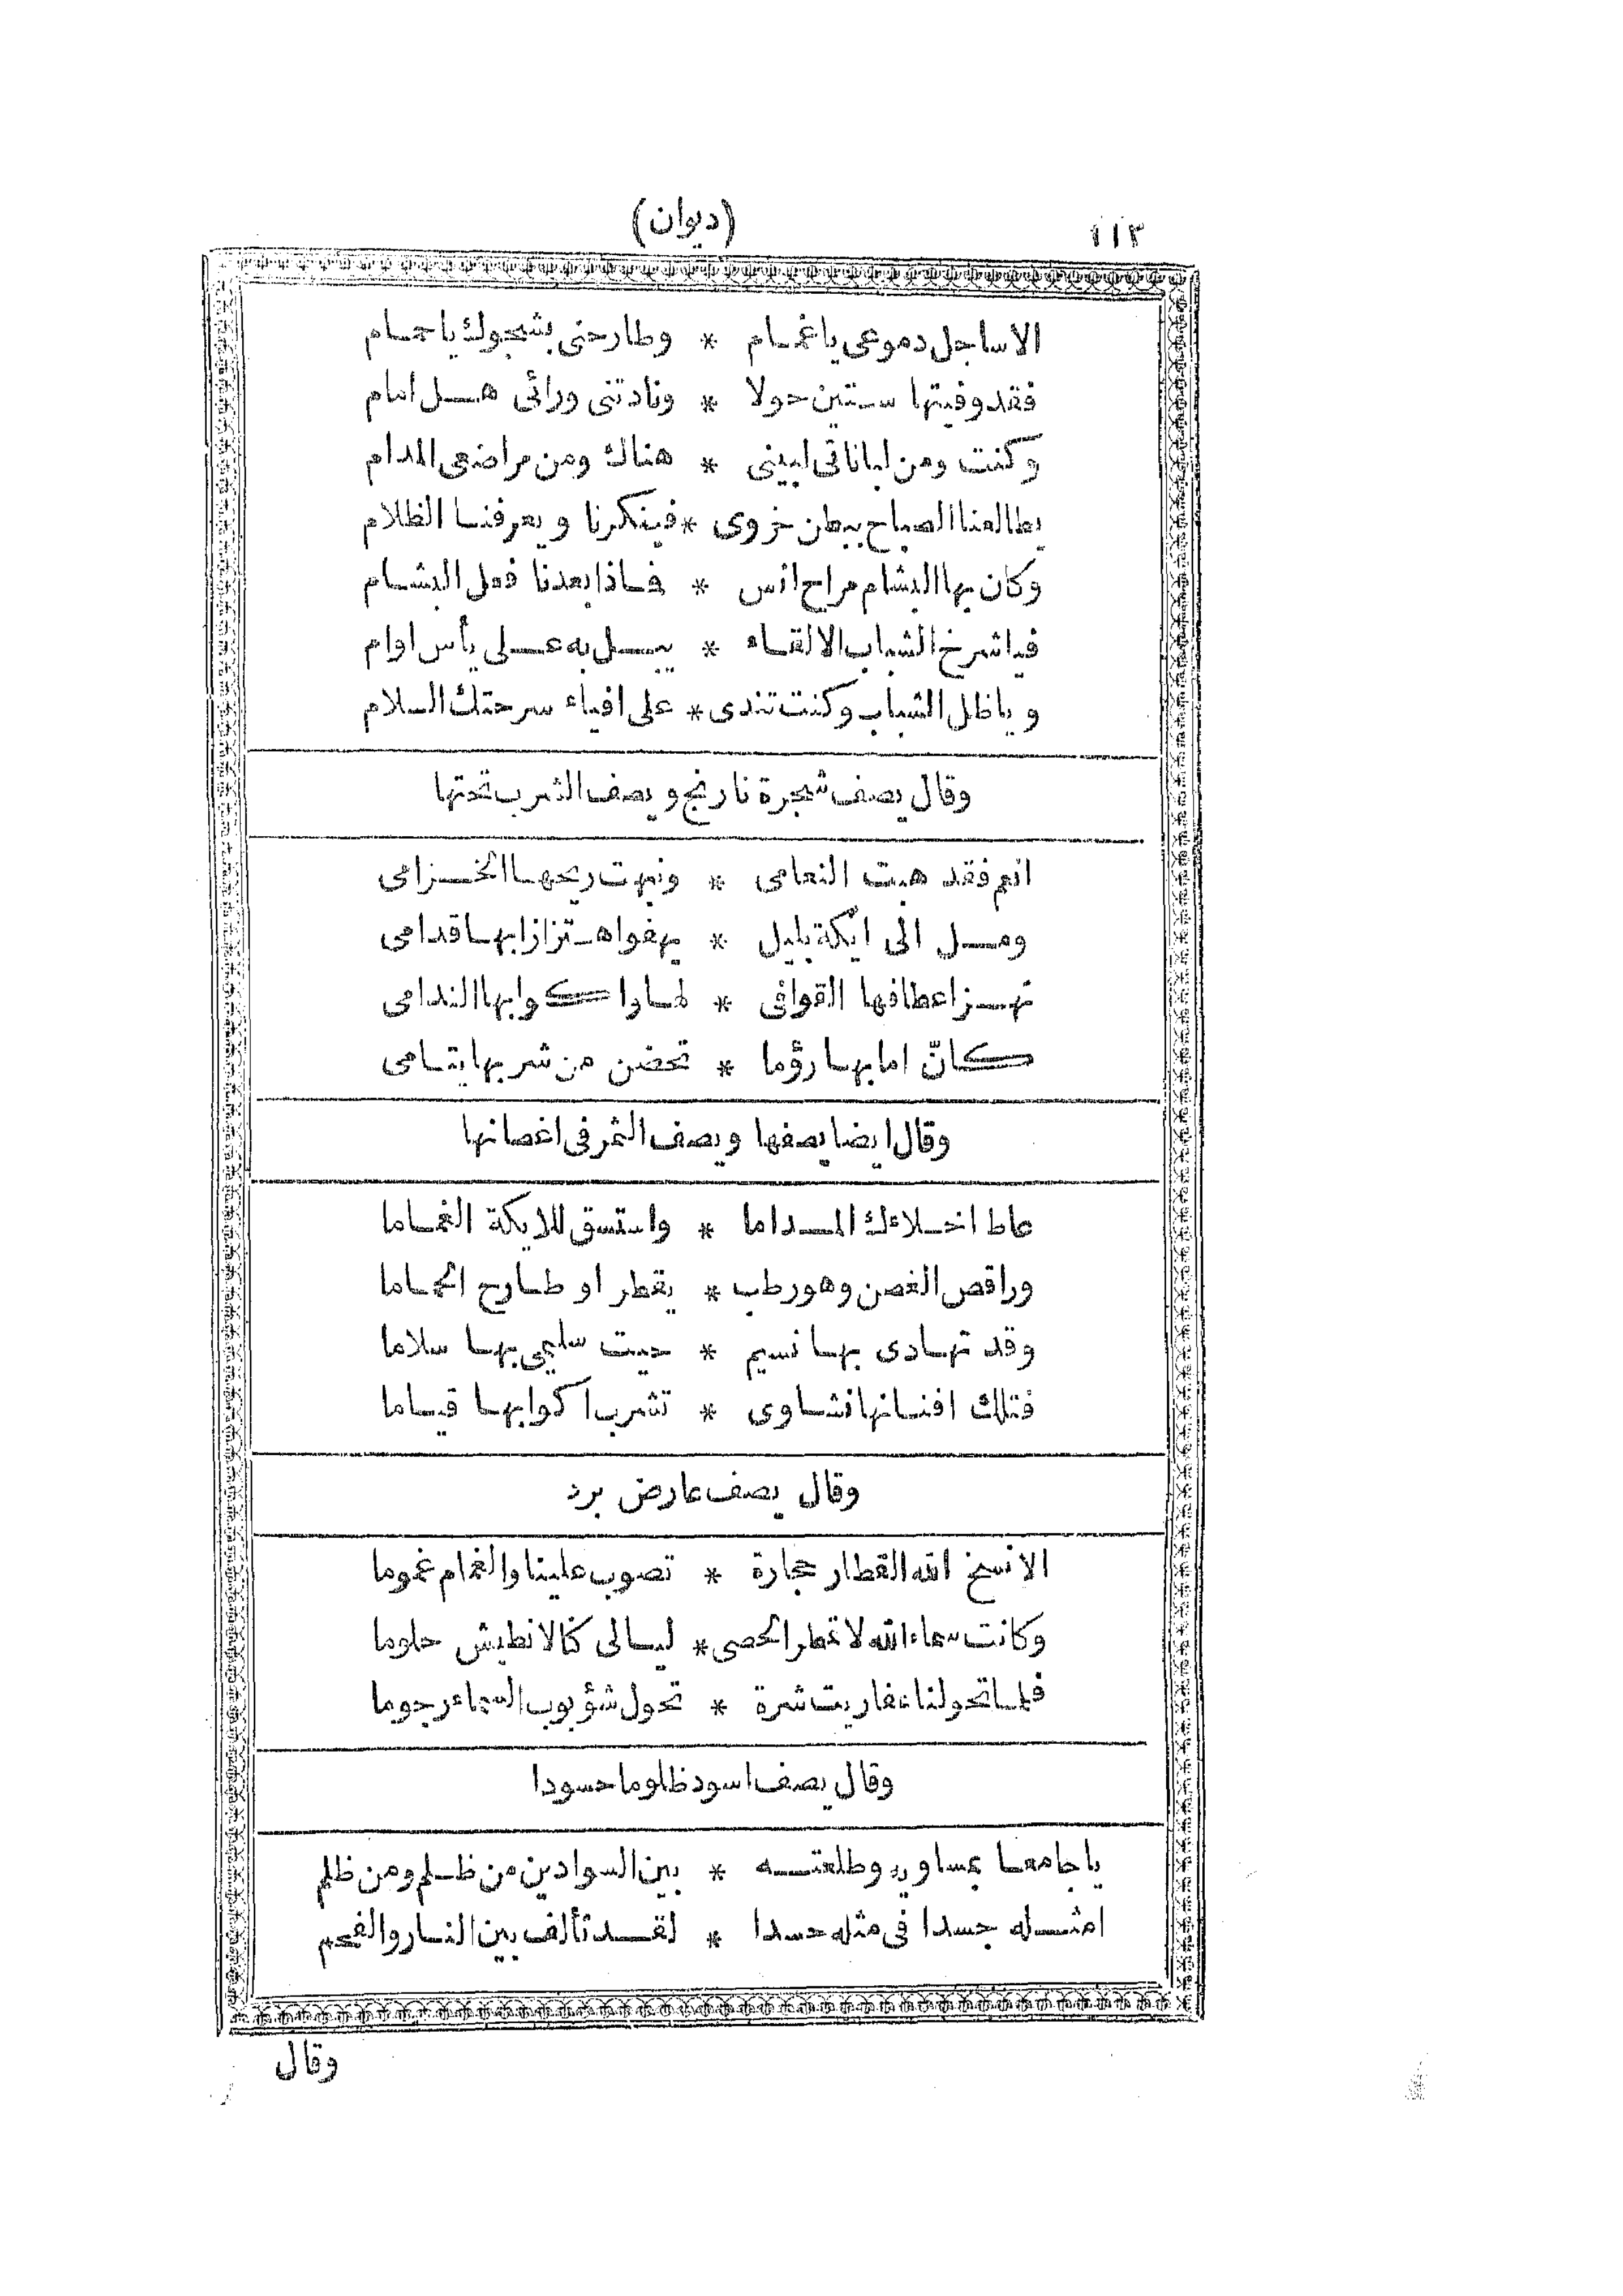 ١١٢
(ديوان)
الا ساجل دموعى يا غمام * وطارحنى بشجوك يا حمام
فقد وفيتها ستين حولا * ونادتنى ورائى هل امام
وكنت ومن لباناتى لبينى * هناك ومن مراضعى المدام
يطالعنا الصباح ببطن خزوى * فينكرنا ويعرفنا الظلام
وكان بها البشام مراح انس * فاذا بعدنا فعل البشام
فيا شرخ الشباب الا لقاء * يبل به على يأس اوام
ويا ظل الشباب وكنت تندى * على افياء سرحتك السلام
وقال يصف شجرة نارنج ويصف الشرب تحتها
انعم فقد هبت النعامى * ونبهت ريحها الخزامى
ومل الى ايكة بليل * يهفو اهتزازا بها قدامى
تهز اعطافها القوافى * لها واكوابها الندامى
كانّ اما بها رؤما * تحضن من شربها يتامى
وقال ايضا يصفها ويصف الثمر فى اغصانها
عاط اخلاءك المداما * واستسق للايكة الغماما
وراقص الغصن وهو رطب * يقطر او طارح الحماما
وقد تهادى بها نسيم * حيت سليمى بها سلاما
فتلك افنانها نشاوى * تشرب اكوابها قياما
وقال يصف عارض برد
الا نسخ الله القطار حجارة * تصوب علينا والغمام غموما
وكانت سماء الله لا تمطر الحصى * ليالى كنا لا نطيش حلوما
فلما تحولنا عفاريت شرة * تحول شؤبوب السماء رجوما
وقال يصف اسود ظلوما حسودا
يا جامعا بمساويه وطلعته * بين السوادين من ظلم ومن ظلم
امثله جسدا فى مثله حسدا * لقد تألف بين النار والفحم
وقال